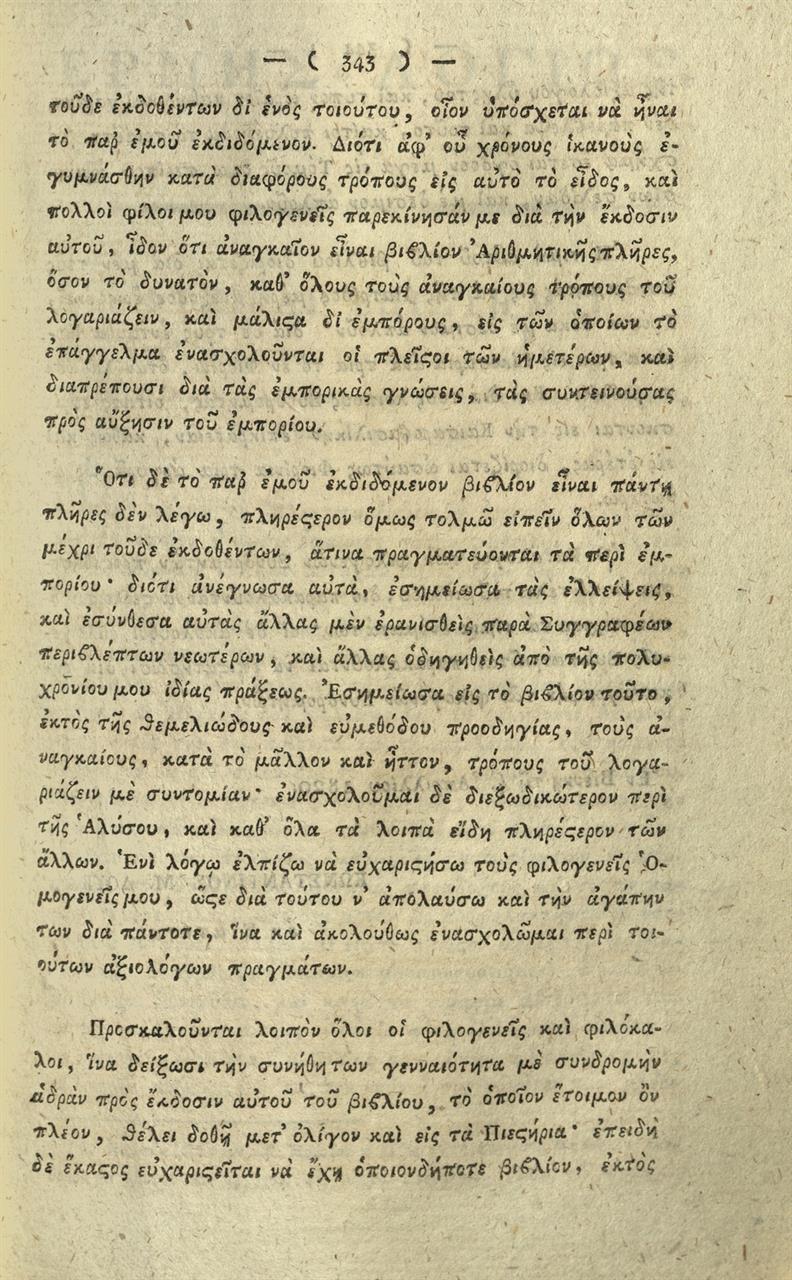 — ( 343 ) —
τοῦδε ἐκδοθέντων δἰ ἑνὸς τοιούτου, οἷον ὑπόσχεται νὰ ἦναι
τὸ παρ' ἐμοῦ ἐκδιδόμενον. Διότι ἀφ' οὗ χρόνους ἱκανοὺς ἐ-
γυμνάσθην κατὰ διαφόρους τρόπους εἰς αὐτὸ τὸ εἶδος, καὶ
πολλοὶ φίλοι μου φιλογενεῖς παρεκίνησάν με διὰ τὴν ἔκδοσιν
αὐτοῦ, ἶδον ὅτι ἀναγκαῖον εἶναι βιϐλίον Ἀριθμητικῆς πλῆρες,
ὅσον τὸ δυνατὸν, καθ' ὅλους τοὺς ἀναγκαίους τρόπους τοῦ
λογαριάζειν, καὶ μάλιϛα δἰ ἐμπόρους, εἰς τῶν ὁποίων τὸ
ἐπάγγελμα ἐνασχολοῦνται οἱ πλεῖϛοι τῶν ἡμετέρων, καὶ
διαπρέπουσι διὰ τὰς ἐμπορικὰς γνώσεις, τὰς συντεινούσας
πρὸς αὔξησιν τοῦ ἐμπορίου.
Ὅτι δὲ τὸ παρ' ἐμοῦ ἐκδιδόμενον βιϐλίον εἶναι πάντῃ
πλῆρες δὲν λέγω, πληρέϛερον ὅμως τολμῶ εἰπεῖν ὅλων τῶν
μέχρι τοῦδε ἐκδοθέντων, ἅτινα πραγματεύονται τὰ περὶ ἐμ-
πορίου· διότι ἀνέγνωσα αὐτὰ, ἐσημείωσα τὰς ἐλλείψεις,
καὶ ἐσύνθεσα αὐτὰς ἄλλας μὲν ἐρανισθεὶς παρὰ Συγγραφέων
περιϐλέπτων νεωτέρων, καὶ ἄλλας ὁδηγηθεὶς ἀπὸ τῆς πολυ-
χρονίου μου ἰδίας πράξεως. Ἐσημείωσα εἰς τὸ βιϐλίον τοῦτο,
ἐκτὸς τῆς ϑεμελιώδους καὶ εὐμεθόδου προοδηγίας, τοὺς ἀ-
ναγκαίους, κατὰ τὸ μᾶλλον καὶ ἧττον, τρόπους τοῦ λογα-
ριάζειν μὲ συντομίαν· ἐνασχολοῦμαι δὲ διεξωδικώτερον περὶ
τῆς Ἁλύσου, καὶ καθ' ὅλα τὰ λοιπὰ εἴδη πληρέϛερον τῶν
ἄλλων. Ἑνὶ λόγῳ ἐλπίζω νὰ εὐχαριϛήσω τοὺς φιλογενεῖς Ὁ-
μογενεῖς μου, ὥϛε διὰ τούτου ν' ἀπολαύσω καὶ τὴν ἀγάπην
των διὰ πάντοτε, ἵνα καὶ ἀκολούθως ἐνασχολῶμαι περὶ τοι-
ούτων ἀξιολόγων πραγμάτων.
Προσκαλοῦνται λοιπὸν ὅλοι οἱ φιλογενεῖς καὶ φιλόκα-
λοι, ἵνα δείξωσι τὴν συνήθη των γενναιότητα μὲ συνδρομὴν
ἁδρὰν πρὸς ἔκδοσιν αὐτοῦ τοῦ βιϐλίου, τὸ ὁποῖον ἕτοιμον ὂν
πλέον, ϑέλει δοθῇ μετ' ὀλίγον καὶ εἰς τὰ Πιεϛήρια· ἐπειδὴ
δὲ ἕκαϛος εὐχαριϛεῖται νὰ ἔχῃ ὁποιονδήποτε βιϐλίον, ἐκτὸς